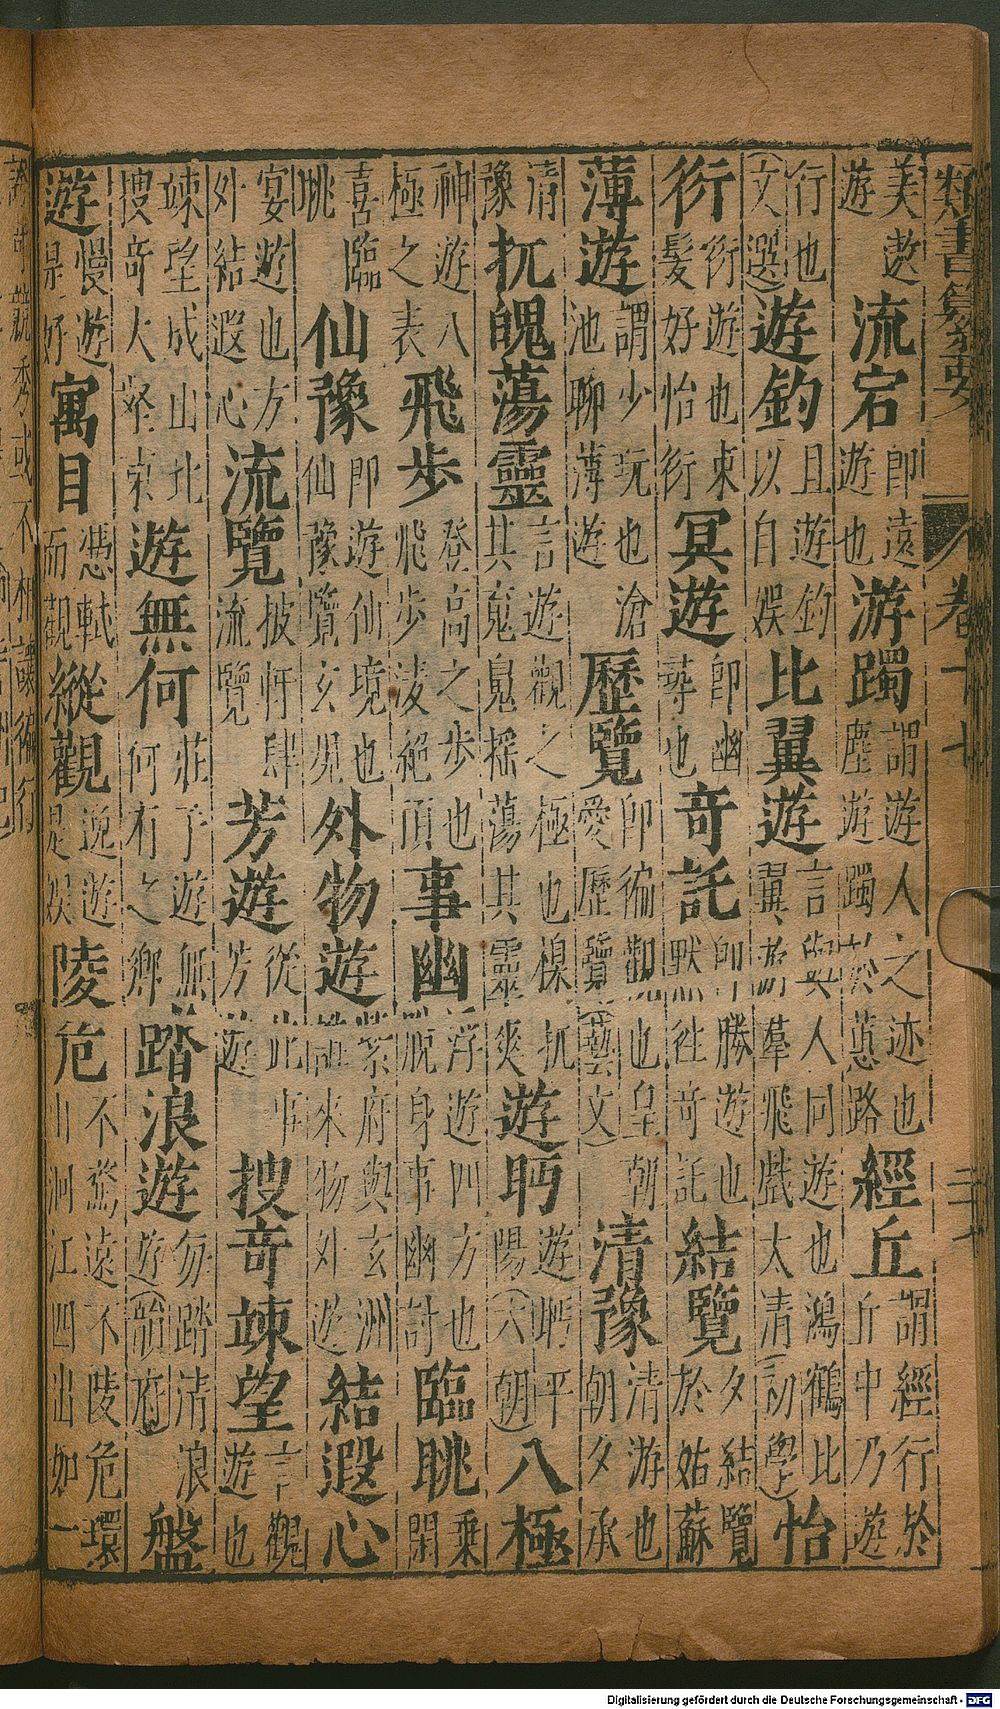 類書纂要 卷十七 二十八
美遨遊 流宕 卽遠遊也 游躅 謂遊人之迹也 塵遊躅於蕙路 經丘 謂經行於丘中乃遊
行也(文選) 遊釣 且遊釣以自娛 比翼遊 言與人同遊也鴻鶴比翼遊羣飛戲太清(初學) 怡
衎 衎遊也束髮好怡衎 冥遊 卽幽尋也 奇託 卽勝遊也默往奇託 結覽 夕結覽於姑蘇
薄遊 謂少玩也滄池聊薄遊 歷覽 卽徧觀也皇朝愛歷覽(藝文) 清豫 清游也朝夕承
清豫 抗魄蕩靈 言遊觀之極也梎抗其䰟䰟摇蕩其靈爽 遊眄 遊眄平陽(六朝) 八極
神遊八極之表 飛步 登高之步也飛步凌絕頂 事幽 浮遊四方也脫身事幽討 臨眺 乗閑
喜臨眺 仙豫 卽遊仙境也仙豫覽玄 外物遊 紫府與玄洲誰來物外遊 結遐心
宴遊也方外結遐心 流覽 披㤃肆流覽 芳遊 從此事芳遊 搜奇竦望 言觀遊也
竦望成山北搜奇大 東 遊無何 莊子遊無何有之鄉 踏浪遊 勿踏清浪遊(韻府) 盤
遊 慢遊是好 寓目 憑軾而觀 縱觀 逸遊是娛 陵危 不驚遠不陵危環山洞江四出如一
Digitalisierung gefördert durch die Deutsche Forschungsgemeinschaft - DFG